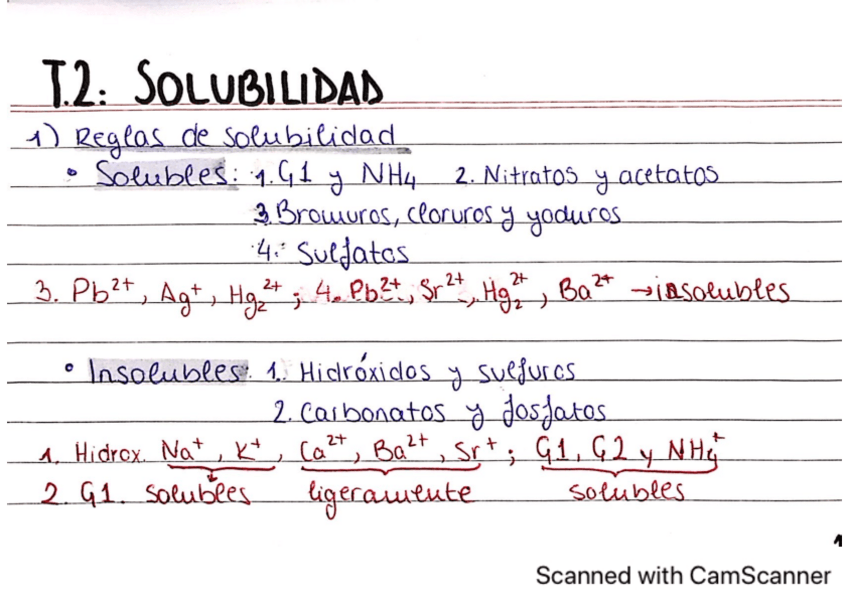 T.2: SOLUBILIDAD
1) Reglas de solubilidad
• Solubles: 1. G1 y NH4 2. Nitratos y acetatos
3. Bromuros, cloruros y yoduros
4. Sulfatos
3. Pb²⁺, Ag⁺, Hg₂²⁺; 4. Pb²⁺, Sr²⁺, Hg₂²⁺, Ba²⁺ → insolubles
• Insolubles: 1. Hidróxidos y sulfuros
2. Carbonatos y fosfatos
1. Hidrox. Na⁺, K⁺, Ca²⁺, Ba²⁺, Sr⁺; G1, G2 y NH₄⁺
2. G1. solubles ligeramente solubles
1
Scanned with CamScanner